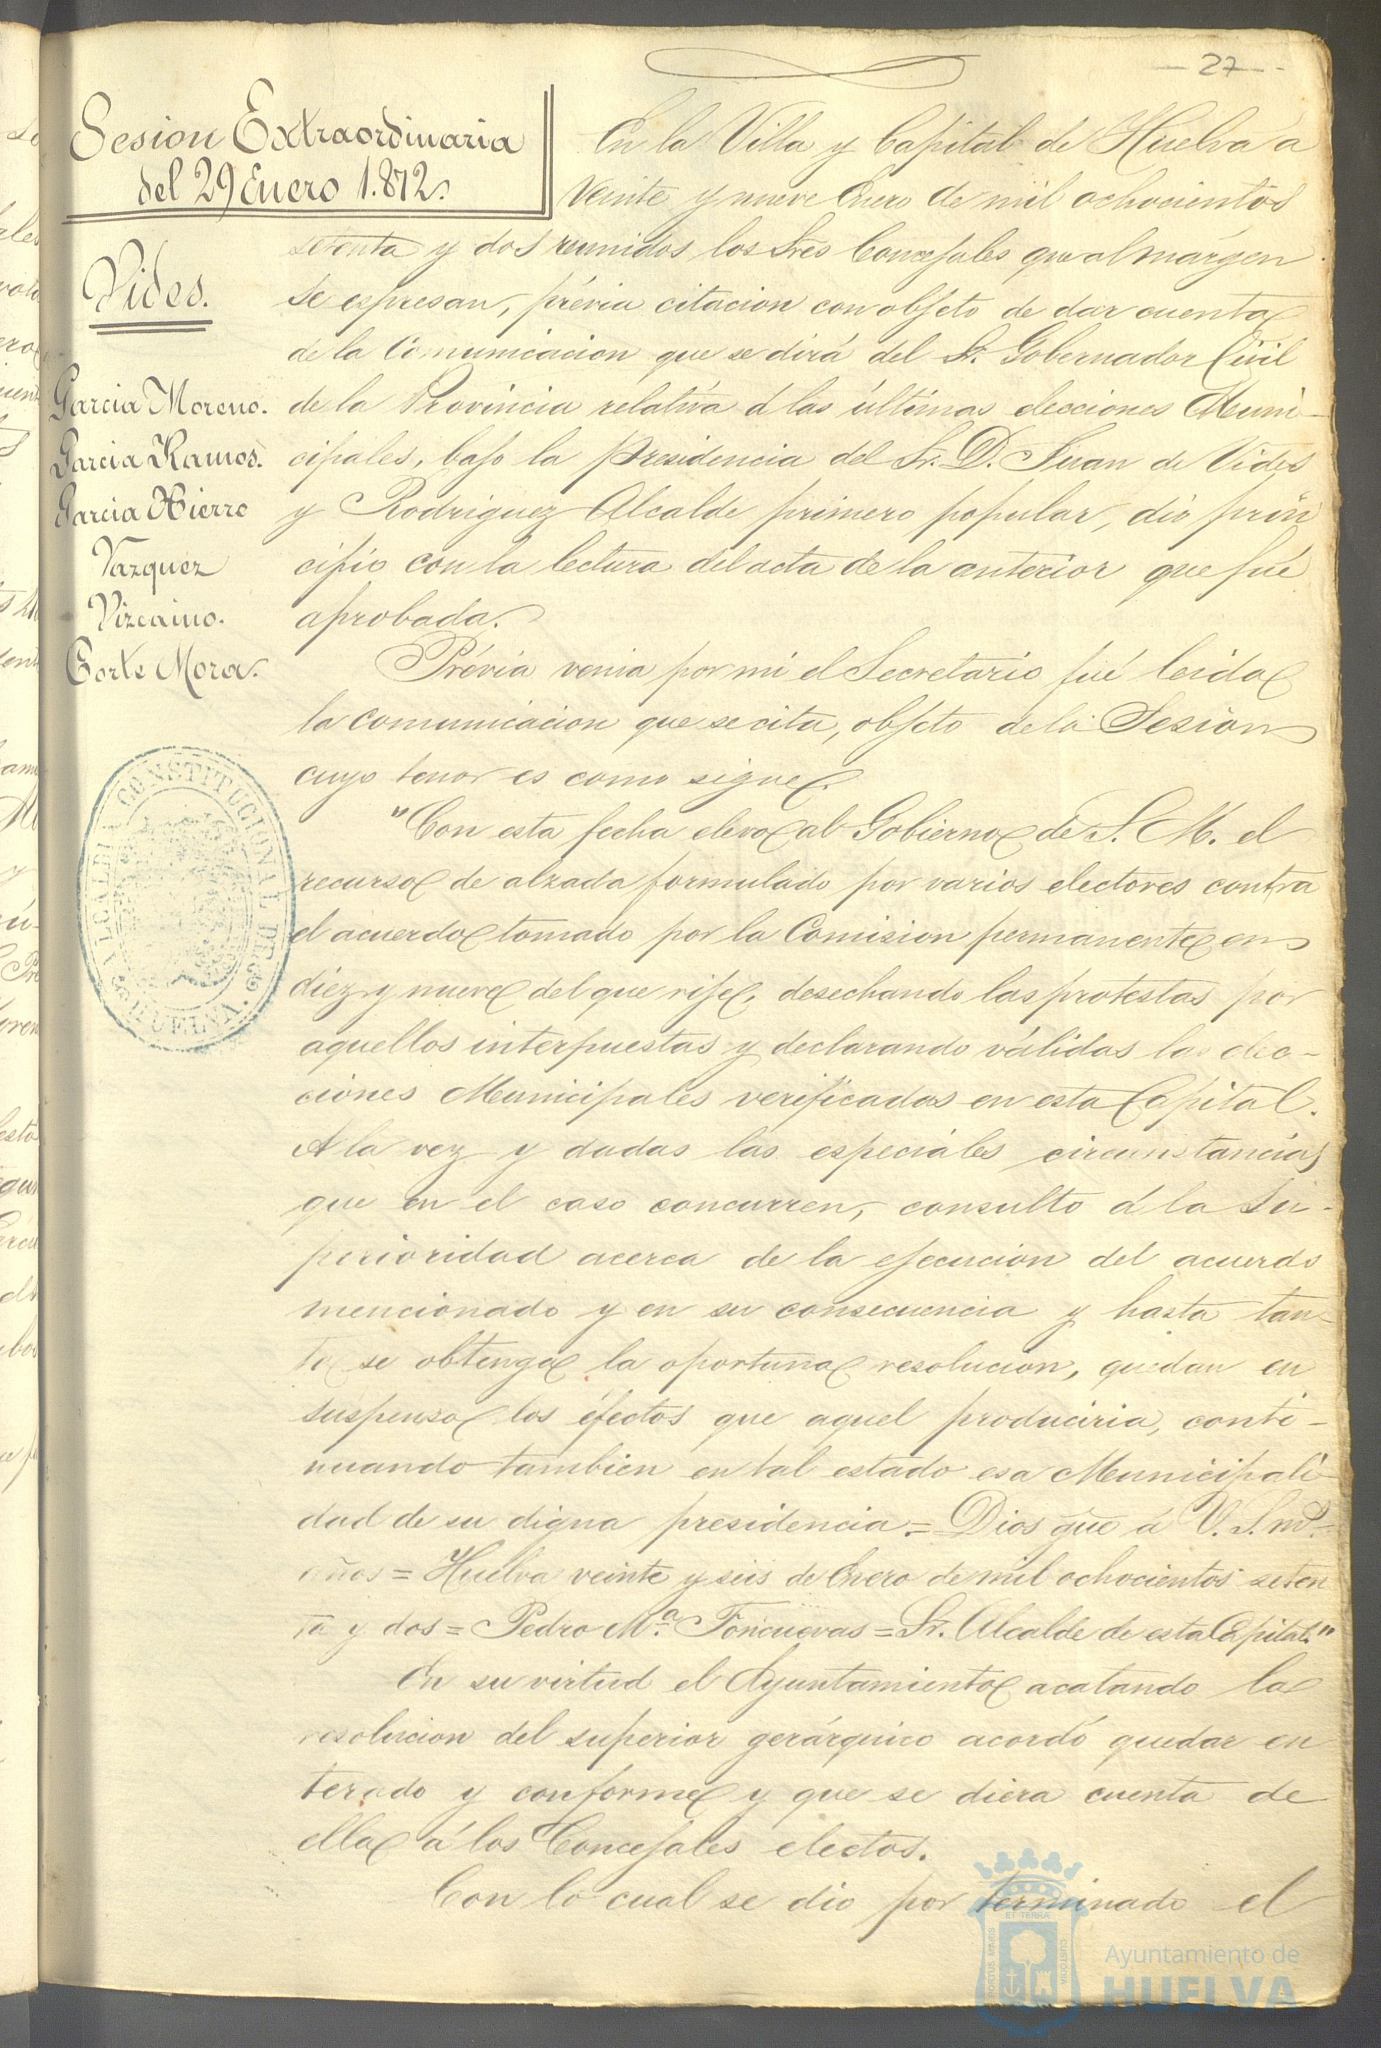 27
Sesion Extraordinaria
del 29 Enero 1.872.
Vides.
Garcia Moreno.
Garcia Ramos.
Garcia Hierro
Vazquez
Vizcaino.
Corte Mora.
En la Villa y Capital de Huelva a
veinte y nueve Enero de mil ochocientos
setenta y dos reunidos los Sres Concejales que al márgen
se espresan, prévia citacion con objeto de dar cuenta
de la Comunicacion que se dirá del Sr. Gobernador Civil
de la Provincia relativa á las últimas elecciones Muni-
cipales, bajo la presidencia del Sr. D. Juan de Vides
y Rodriguez Alcalde primero popular, dió prin
cipio con la lectura del acta de la anterior que fué
aprobada.
Prévia venia por mi el Secretario fué leida
la comunicacion que se cita, objeto de la Sesion
cuyo tenor es como sigue.
"Con esta fecha elevo al Gobierno de S. M. el
recurso de alzada formulado por varios electores contra
el acuerdo tomado por la Comision permanente en
diez y nueve del que rije, desechando las protestas por
aquellos interpuestas y declarando válidas las elec-
ciones Municipales verificadas en esta Capital.
A la vez y dadas las especiales circunstancias
que en el caso concurren, consulto á la Su-
perioridad acerca de la ejecucion del acuerdo
mencionado y en su consecuencia y hasta tan-
to se obtenga la oportuna resolucion, quedan en
suspenso los efectos que aquel produciria, conti-
nuando tambien en tal estado esa Municipali-
dad de su digna presidencia = Dios gue á V. S. ms.
años = Huelva veinte y seis de Enero de mil ochocientos seten
ta y dos = Pedro M.ª Foncuevas = Sr. Alcalde de esta Capital."
En su virtud el Ayuntamiento acatando la
resolucion del superior gerárquico acordó quedar en
terado y conforme y que se diera cuenta de
ella á los Concejales electos.
Con lo cual se dio por terminado el
ALCALDIA CONSTITUCIONAL DE HUELVA
PORTUS MARIS ET TERRÆ CUSTODIA
Ayuntamiento de
HUELVA